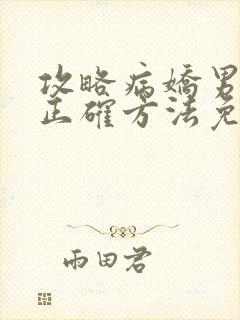 攻略病嬌男
正確方法免
雨田君